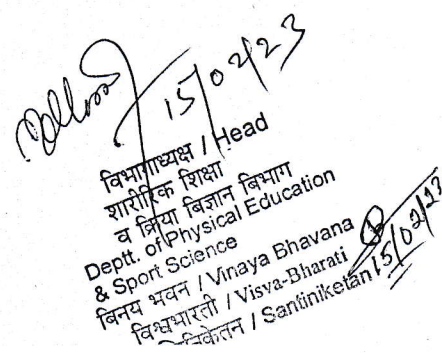 15/02/23
विभागाध्यक्ष / Head
शारीरिक शिक्षा
व क्रिया बिज्ञान बिभाग
Deptt. of Physical Education
& Sport Science
बिनय भवन / Vinaya Bhavana
विश्वभारती / Visva-Bharati
/ Santiniketan 15/02/23